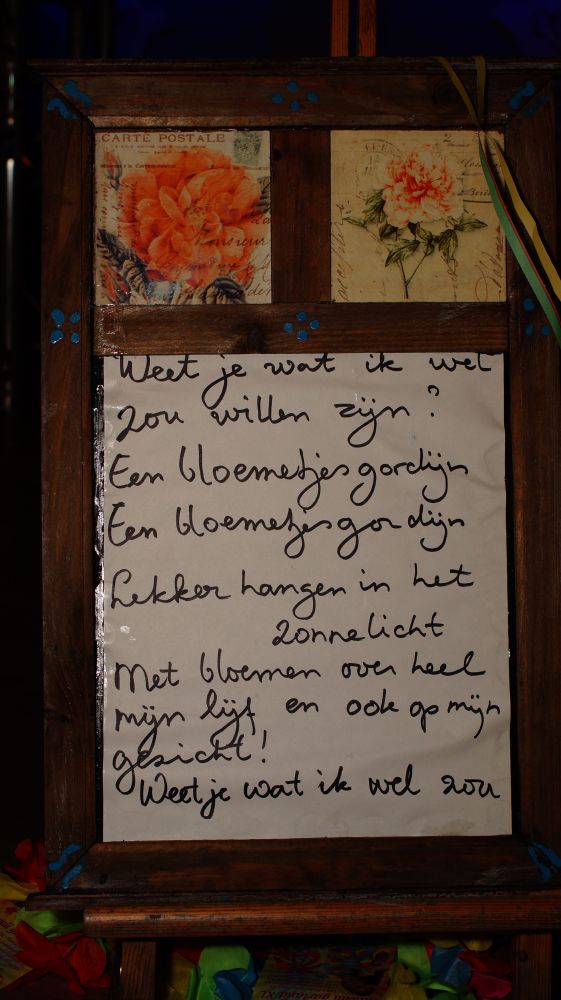 CARTE POSTALE
Weet je wat ik wel
zou willen zijn?
Een bloemetjesgordijn
Een bloemetjesgordijn
Lekker hangen in het
zonnelicht
Met bloemen over heel
mijn lijf en ook op mijn
gezicht!
Weet je wat ik wel zou